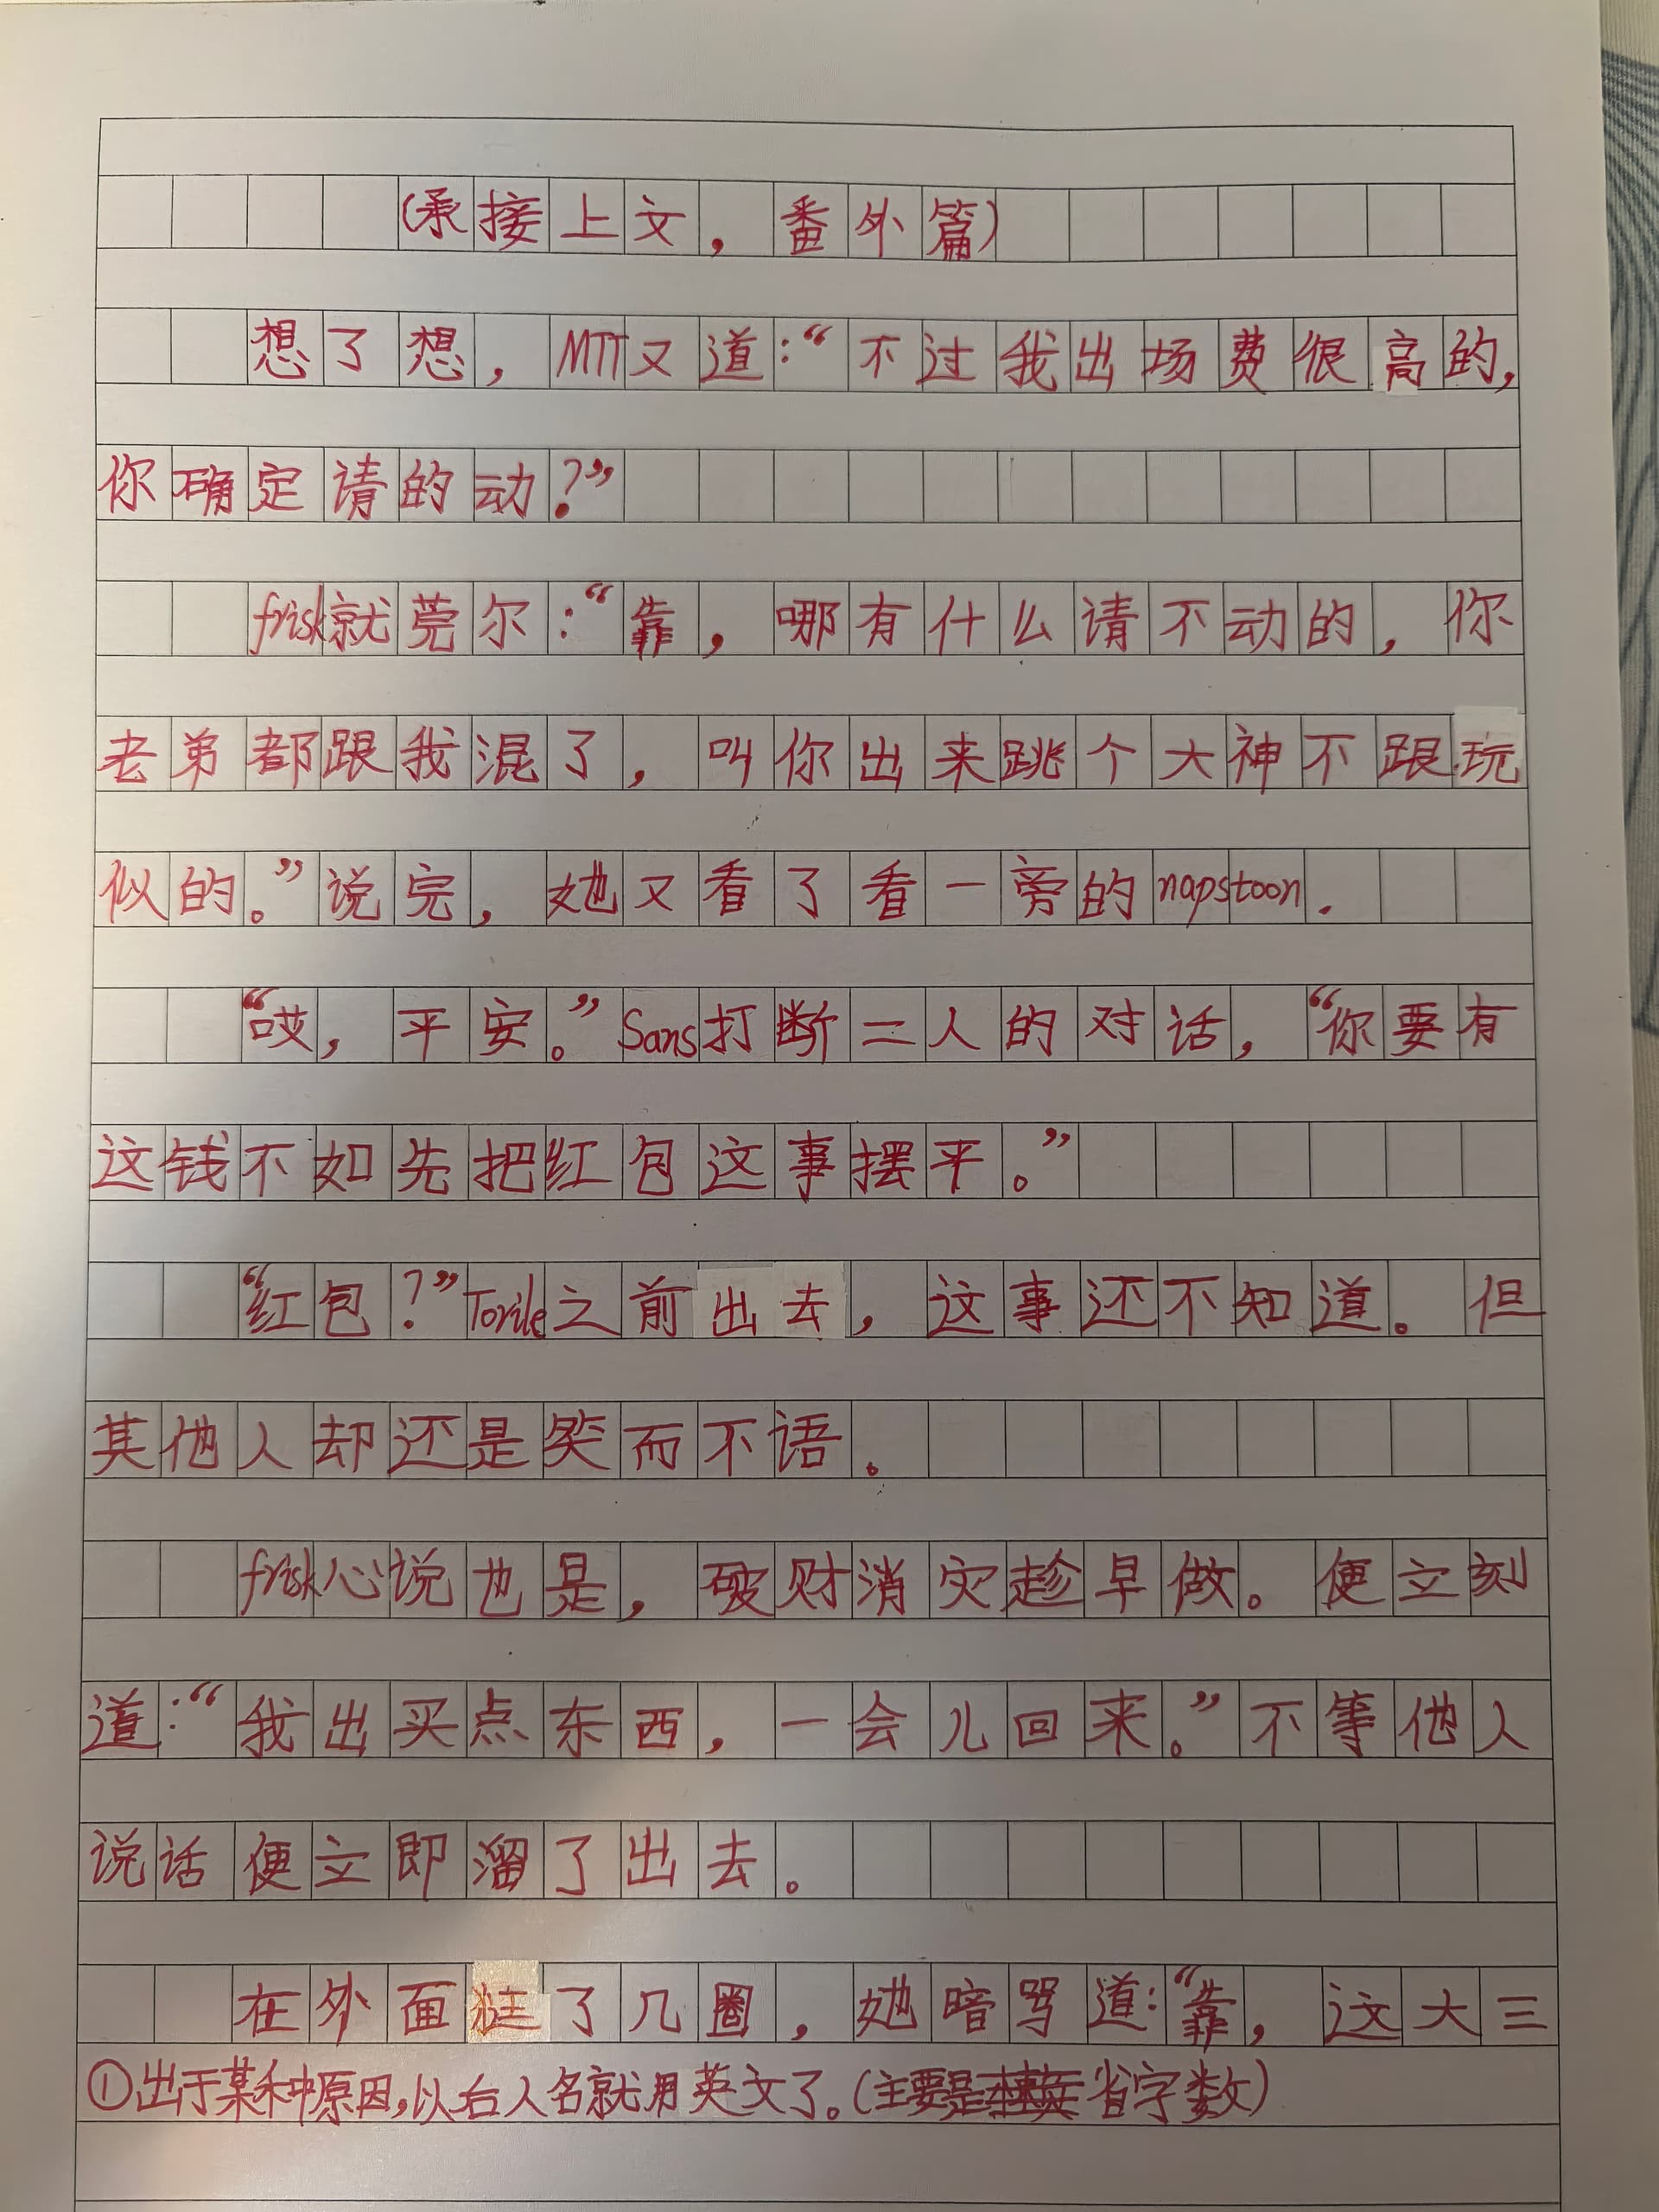 (承接上文，番外篇)
想了想，MTT又道：“不过我出场费很高的，
你确定请的动？”
frisk就莞尔：“靠，哪有什么请不动的，你
老弟都跟我混了，叫你出来跳个大神不跟玩
似的。”说完，她又看了看一旁的napstoon.
“哎，平安。”Sans打断二人的对话，“你要有
这钱不如先把红包这事摆平。”
“红包？”Torile之前出去，这事还不知道。但
其他人却还是笑而不语。
frisk心说也是，破财消灾趁早做。便立刻
道：“我出买点东西，一会儿回来。”不等他人
说话便立即溜了出去。
在外面逛了几圈，她暗骂道：“靠，这大三
①出于某种原因，以后人名就用英文了。(主要是省字数)